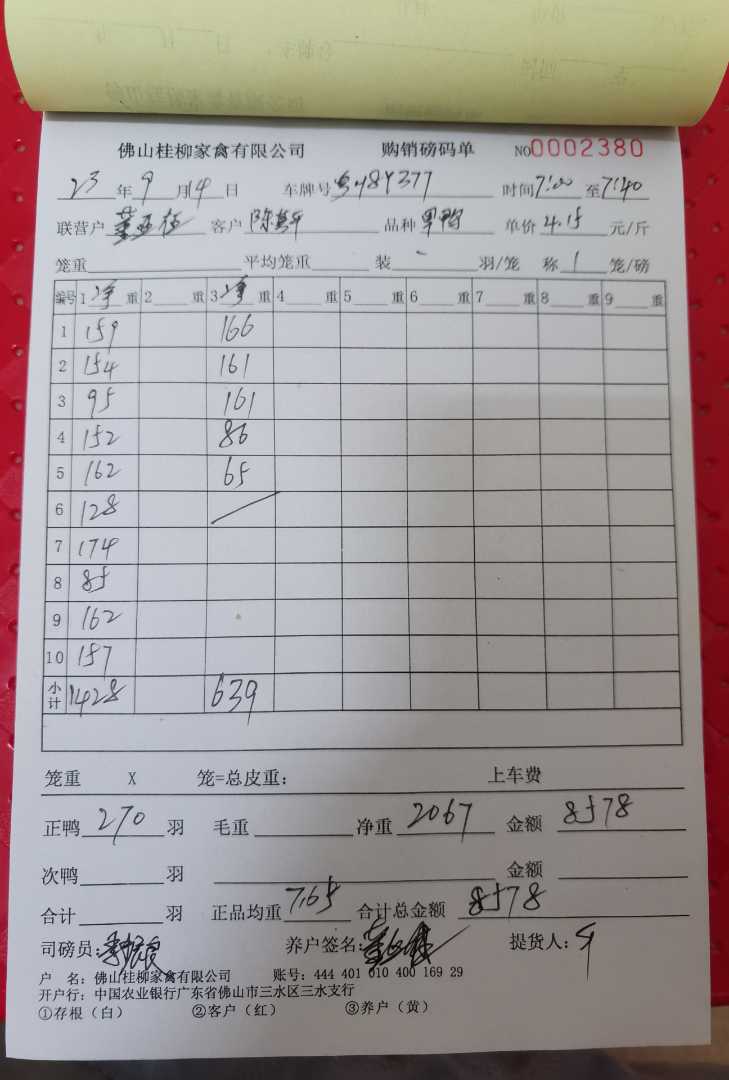 佛山桂柳家禽有限公司 购销磅码单 NO0002380
23年9月14日 车牌号 时间7:00至7:40
联营户 客户 品种 单价4.15元/斤
笼重 平均笼重 装 - 羽/笼 称 1 笼/磅
编号 1 净 重 2 重 3 净 重 4 重 5 重 6 重 7 重 8 重 9 重
1 159 166
2 154 161
3 95 161
4 152 86
5 162 65
6 128
7 174
8 85
9 162
10 157
小计 1428 639
笼重 X 笼=总皮重: 上车费
正鸭 270 羽 毛重 净重 2067 金额 8578
次鸭 羽 金额
合计 羽 正品均重 7.65 合计总金额 8578
司磅员: 养户签名: 提货人:
户 名:佛山桂柳家禽有限公司 账号:444 401 010 400 169 29
开户行:中国农业银行广东省佛山市三水区三水支行
①存根(白) ②客户(红) ③养户(黄)